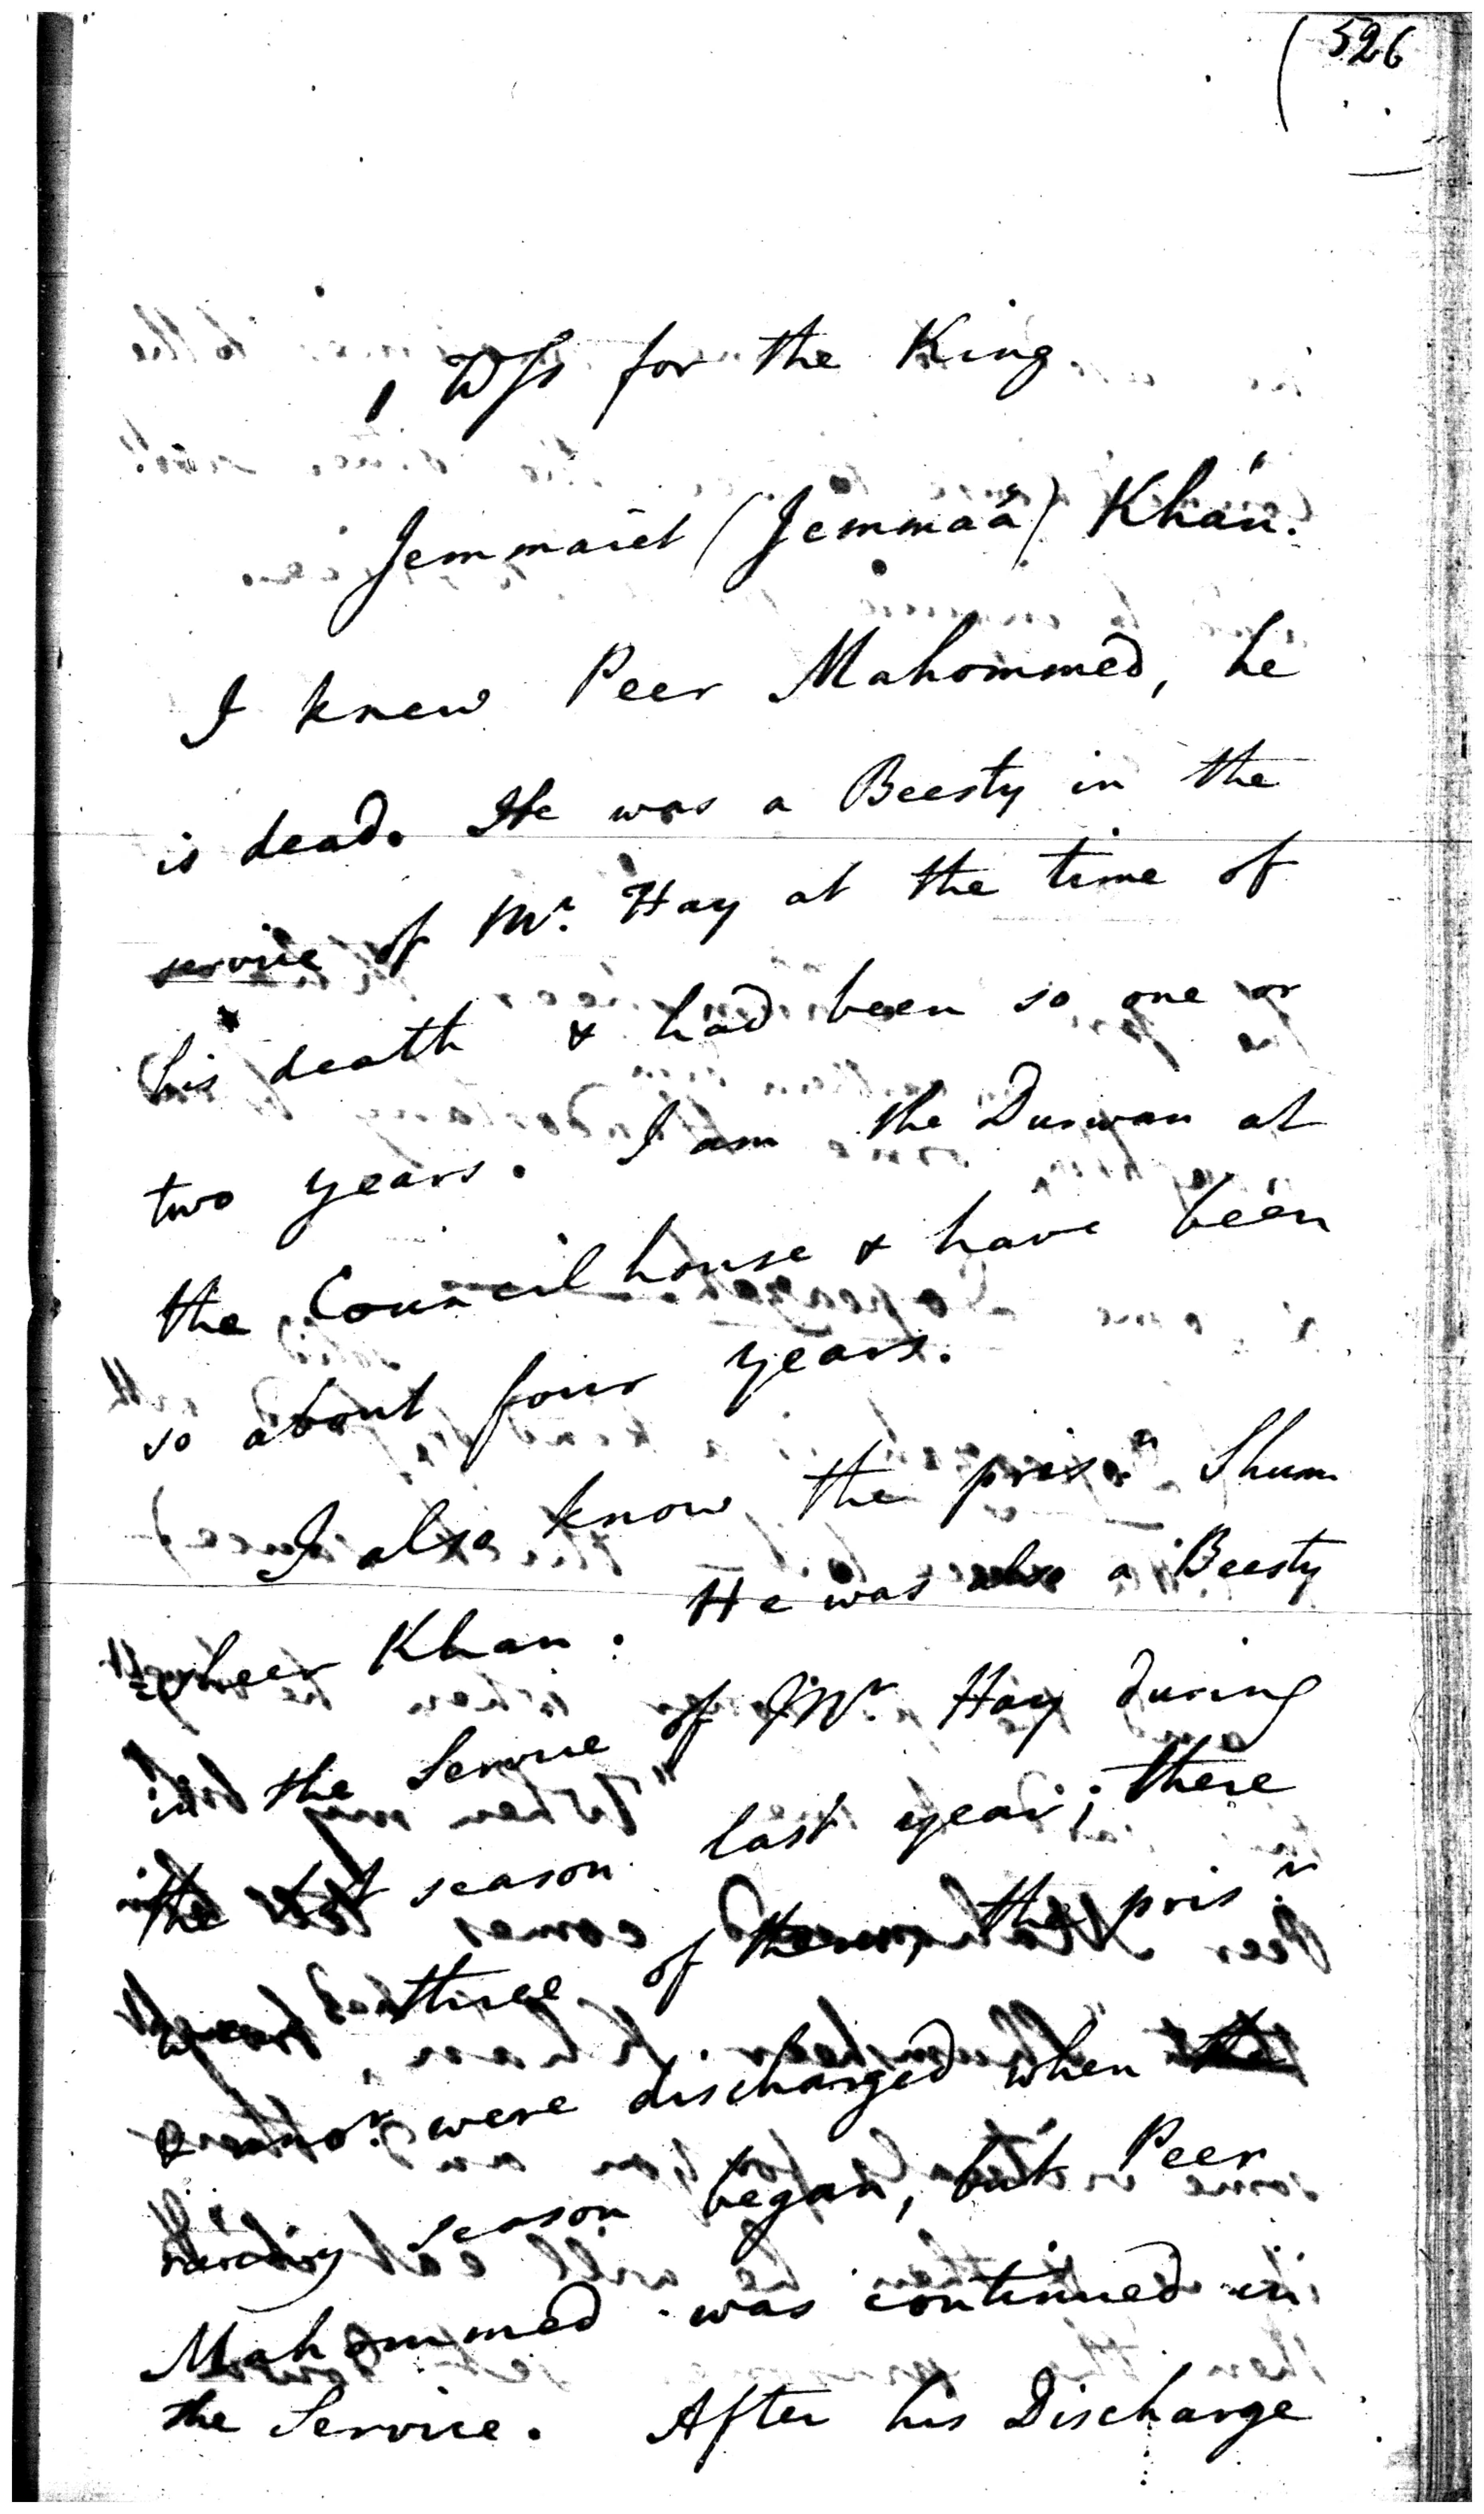 (526
Wss for the King.
Jemmaiet (Jemmaà) Khán.
I knew Peer Mahommed, he
is dead. He was a Beesty in the
service of Mr. Hay at the time of
his death & had been so one or
two years. I am the Durwan at
the Council house & have been
so about four years.
I also know the prisr. Shum
sheer Khan. He was also a Beesty
in the Service of Mr. Hay during
the hot season last year; there
were three of them, the prisr.
& anor. were discharged when the
rainy season began, but Peer
Mahommed was continued in
the Service. After his Discharge